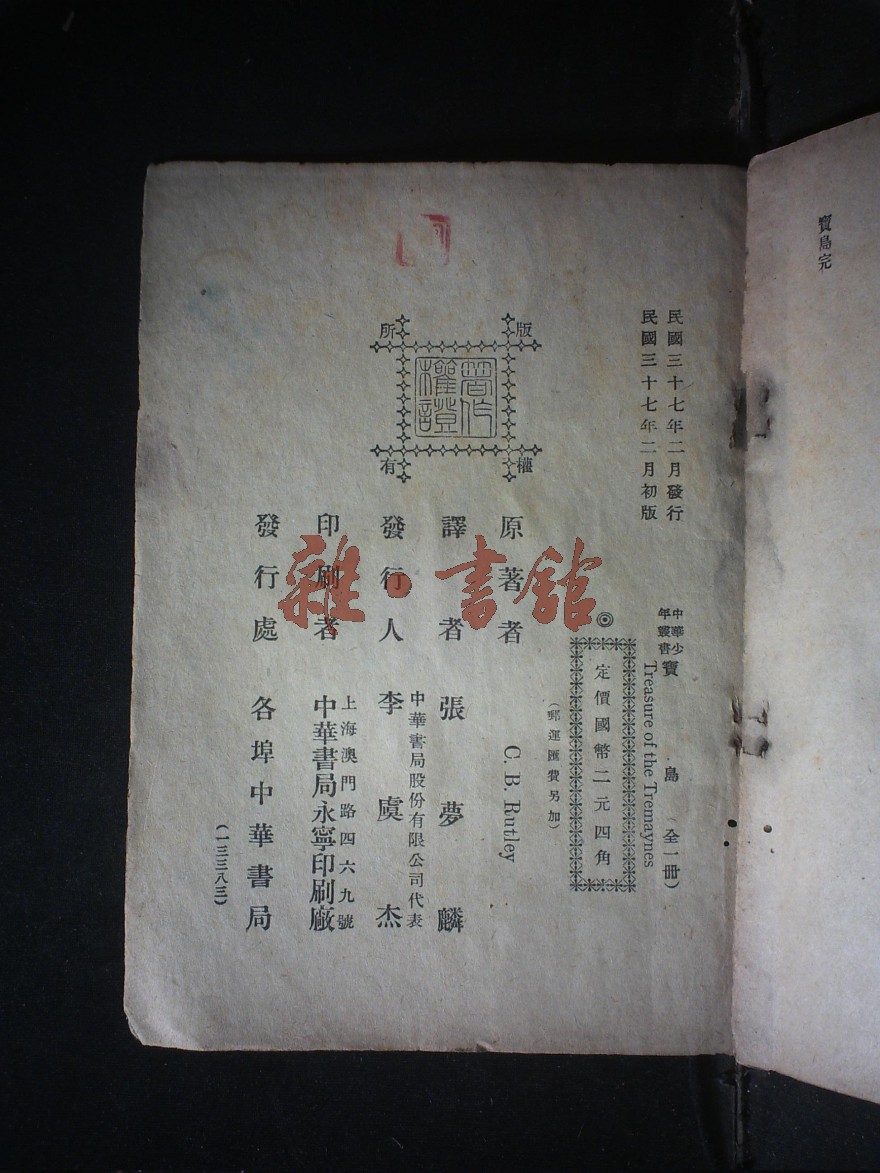 寶島完
民國三十七年二月發行
民國三十七年二月初版
中華少年叢書
寶島(全一冊)
Treasure of the Tremaynes
◎定價國幣二元四角
(郵運匯費另加)
原著者 C. B. Rutley
譯者 張夢麟
發行人 中華書局股份有限公司代表 李虞杰
印刷者 上海澳門路四六九號 中華書局永寧印刷廠
發行處 各埠中華書局
(一三三八三)
版權所有
著作權證
雜·書館